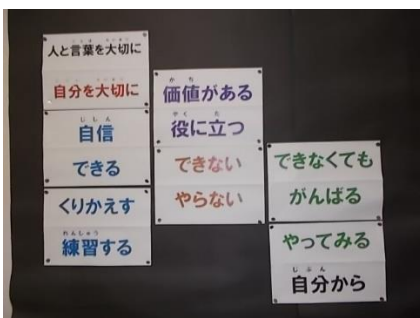 人と言葉を大切に
自分を大切に
じしん
自信
できる
くりかえす
れんしゅう
練習する
かち
価値がある
やくた
役に立つ
できない
やらない
できなくても
がんばる
やってみる
じぶん
自分から